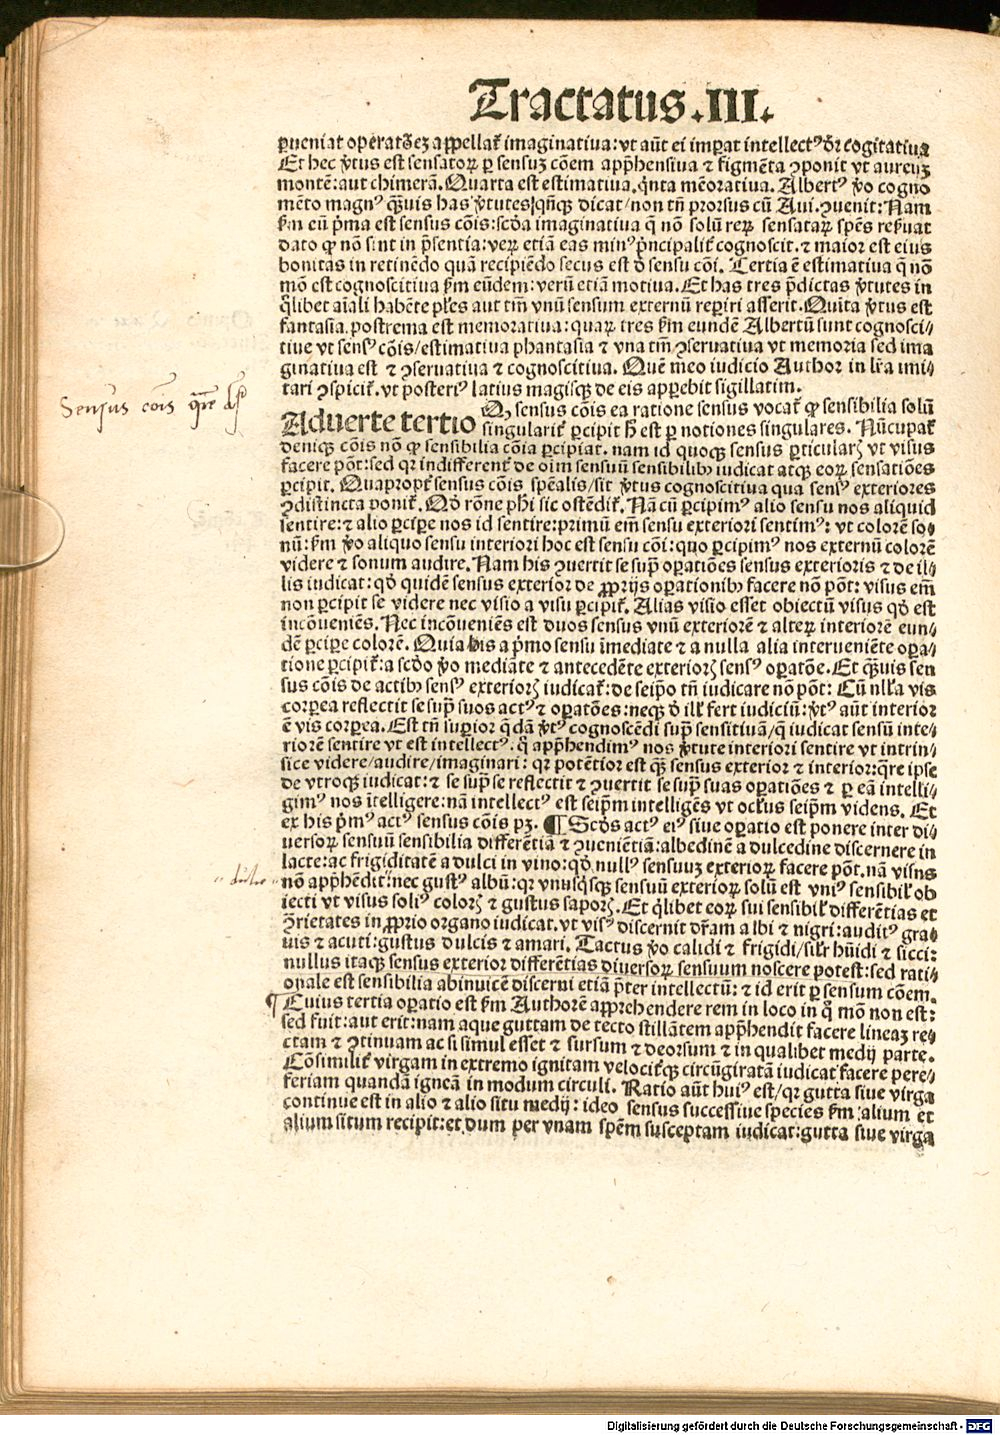 Tractatus.III.
ꝑueniat operatōeꝫ appellat᷑ imaginatiua: vt aūt ei imꝑat intellectꝰ dr̄ cogitatiua
Et hec v̓tus est sensatoꝝ ꝑ sensuꝫ cōem app̄hensiua ⁊ figmēta ꝯponit vt aureuꝫ
montē: aut chimerā. Quarta est estimatiua. q̄nta mēoratiua. Albertꝰ v̓o cogno
mēto magnꝰ q̄ꝫuis has v̓tutes/qn̄qꝫ dicat/non tn̄ prorsus cū Aui. ꝯuenit: Nam
ẜm eū p̄ma est sensus cōis: scd̓a imaginatiua q̄ nō solū reꝝ sensataꝝ spēs reẜuat
dato ꝙ nō sint in p̄sentia: veꝝ etiā eas minꝰ p̓ncipalit᷑ cognoscit. ⁊ maior est eius
bonitas in retinēdo quā recipiēdo secus est d̓ sensu cōi. Tertia ē estimatiua q̄ nō
mō est cognoscitiua ẜm eūdem: verū etiā motiua. Et has tres p̄dictas v̓tutes in
q̄libet aīali habēte pl̓es aut tm̄ vnū sensum externū reꝑiri asserit. Quīta v̓tus est
fantasia. postrema est memoratiua: quaꝝ tres ẜm eundē Albertū sunt cognosci⸗
tiue vt sensꝰ cōis/estimatiua phantasia ⁊ vna tm̄ ꝯseruatiua vt memoria sed ima
ginatiua est ⁊ ꝯseruatiua ⁊ cognoscitiua. Quē meo iudicio Author in lr̄a imi⸗
tari ꝯspicit᷑. vt posteriꝰ latius magisqꝫ de eis apꝑebit sigillatim.
Sensus cōis
Aduerte tertio Qꝫ sensus cōis ea ratione sensus vocat᷑ ꝙ sensibilia solū
singularit᷑ ꝑcipit hͦ est ꝑ notiones singulares. Nūcupat᷑
deniqꝫ cōis nō ꝙ sensibilia cōia ꝑcipiat. nam id quoqꝫ sensus ꝑticularꝭ vt visus
facere pōt: sed qꝛ indifferent᷑ de oīm sensuū sensibilibꝰ iudicat atqꝫ eoꝝ sensatiōes
ꝑcipit. Quapropt᷑ sensus cōis spēalis/sit v̓tus cognoscitiua qua sensꝰ exteriores
ꝯdistincta ponit᷑. Qd̓ rōne phi sic ostēdit᷑. Nā cū ꝑcipimꝰ alio sensu nos aliquid
sentire: ⁊ alio ꝑciꝑe nos id sentire: primū em̄ sensu exteriori sentimꝰ: vt colorē so⸗
nū: ẜm v̓o aliquo sensu interiori hoc est sensu cōi: quo ꝑcipimꝰ nos externū colorē
videre ⁊ sonum audire. Nam his ꝯuertit se suꝑ oꝑatiōes sensus exterioris ⁊ de il⸗
lis iudicat: qd̓ quidē sensus exterior de ꝓprijs oꝑationibꝰ facere nō pōt: visus em̄
non ꝑcipit se videre nec visio a visu ꝑcipit᷑. Alias visio esset obiectū visus qd̓ est
incōueniēs. Nec incōueniēs est duos sensus vnū exteriorē ⁊ alteꝝ interiorē eun⸗
dē ꝑciꝑe colorē. Quia his a p̓mo sensu īmediate ⁊ a nulla alia interueniēte oꝑa⸗
tione ꝑcipit᷑: a scd̓o v̓o mediāte ⁊ antecedēte exteriorꝭ sensꝰ oꝑatōe. Et q̄ꝫuis sen
sus cōis de actibꝰ sensꝰ exteriorꝭ iudicat᷑: de seipō tn̄ iudicare nō pōt: Cū nll̓a vis
corꝑea reflectit se suꝑ suos actꝰ ⁊ oꝑatōes: neqꝫ d̓ ill̓ fert iudiciū: v̓tꝰ aūt interior
ē vis corꝑea. Est tn̄ suꝑior q̄dā v̓tꝰ cognoscēdi suꝑ sensitiuā/q̄ iudicat sensū inte⸗
riorē sentire vt est intellectꝰ. q̄ app̄hendimꝰ nos v̓tute interiori sentire vt intrin⸗
sice videre/audire/imaginari: qꝛ potētior est q̄ꝫ sensus exterior ⁊ interior: q̄re ipse
de vtroqꝫ iudicat: ⁊ se suꝑ se reflectit ⁊ ꝯuertit se suꝑ suas oꝑatiōes ⁊ ꝑ eā intelli⸗
gimꝰ nos ītelligere: nā intellectꝰ est seip̄m intelligēs vt ocl̓us seip̄m videns. Et
ex his p̓mꝰ actꝰ sensus cōis pꝫ. ¶ Scd̓s actꝰ eiꝰ siue oꝑatio est ponere inter di⸗
uersoꝝ sensuū sensibilia differētiā ⁊ ꝯueniētiā: albedinē a dulcedine discernere in
lacte: ac frigiditatē a dulci in vino: qd̓ nullꝰ sensuuꝫ exterioꝝ facere pōt. nā visus
nō app̄hēdit: nec gustꝰ albū: qꝛ vnusq̄sqꝫ sensuū exterioꝝ solū est vniꝰ sensibil̓ ob
iecti vt visus soliꝰ colorꝭ ⁊ gustus saporꝭ. Et q̄libet eoꝝ sui sensibil̓ differētias et
ꝯrietates in ꝓprio organo iudicat. vt visꝰ discernit dr̄am albi ⁊ nigri: auditꝰ gra⸗
uis ⁊ acuti: gustus dulcis ⁊ amari. Tactus v̓o calidi ⁊ frigidi/sil̓r hūidi ⁊ sicci:
nullus itaqꝫ sensus exterior differētias diuersoꝝ sensuum noscere potest: sed rati⸗
onale est sensibilia abinuicē discerni etiā p̄ter intellectū: ⁊ id erit ꝑ sensum cōem.
¶ Cuius tertia oꝑatio est ẜm Authorē apprehendere rem in loco in q̄ mō non est:
sed fuit: aut erit: nam aque guttam de tecto stillātem app̄hendit facere lineaꝫ re⸗
ctam ⁊ ꝯtinuam ac si simul esset ⁊ sursum ⁊ deorsum ⁊ in qualibet medij parte.
Cōsimilit᷑ virgam in extremo ignitam velocit᷑qꝫ circūgiratā iudicat᷑ facere pere⸗
feriam quandā igneā in modum circuli. Ratio aūt huiꝰ est/qꝛ gutta siue virga
continue est in alio ⁊ alio situ medij: ideo sensus successiue species ẜm alium et
alium situm recipit: et dum per vnam spēm susceptam iudicat: gutta siue virga
Digitalisierung gefördert durch die Deutsche Forschungsgemeinschaft - DFG